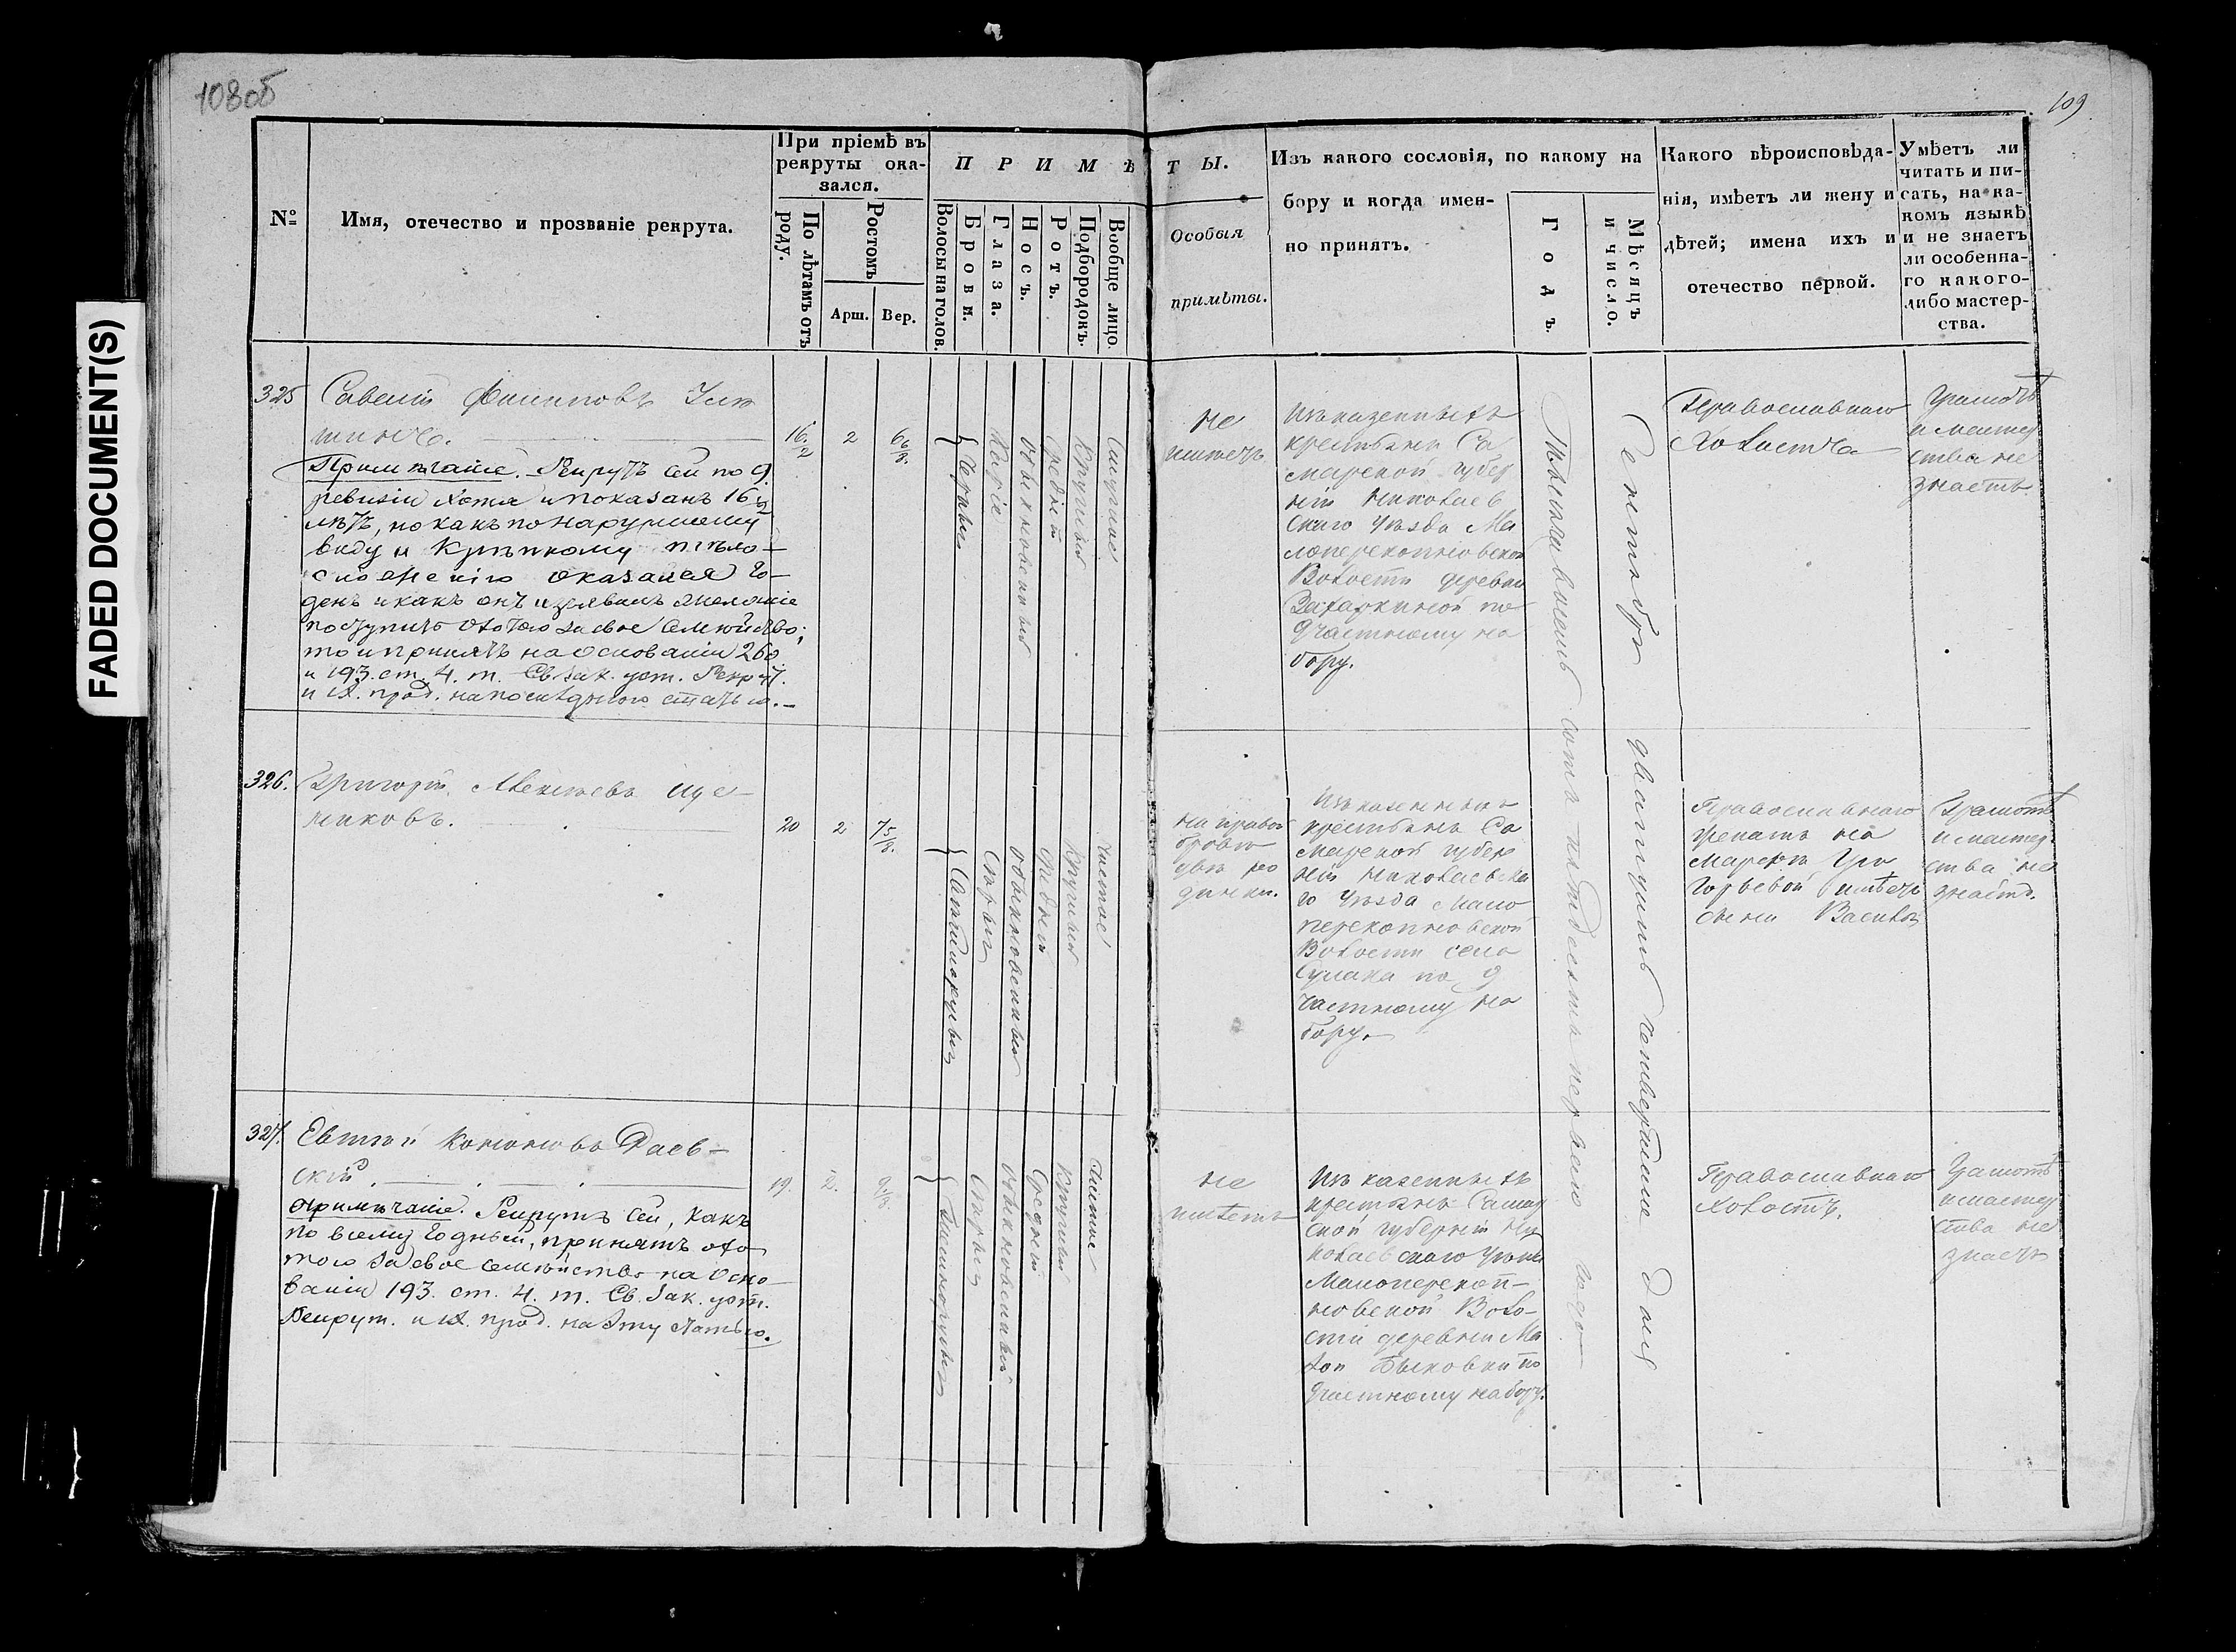 108об
109
FADED DOCUMENT(S)
№
Имя, отечество и прозваніе рекрута.
При пріемѣ въ
рекруты ока-
зался.
По лѣтамъ отъ
роду.
Ростомъ
Арш.
Вер.
ПРИМѢТЫ.
Волосы на голов.
Брови.
Глаза.
Носъ.
Ротъ.
Подбородокъ.
Вообще лицо.
Особыя
примѣты.
Изъ какого сословія, по какому на
бору и когда имен-
но принятъ.
Годъ.
Мѣсяцъ
и число.
Какого вѣроисповѣда-
нія, имѣетъ ли жену и
дѣтей; имена ихъ и
отечество первой.
Умѣетъ ли
читать и пи-
сать, на ка-
комъ языкѣ
и не знаетъ
ли особенна-
го какого-
либо мастер-
ства.
325
Савелій Филиповъ
Примѣчаніе. Рекрутъ сей по 9
ревизіи хотя и показанъ 16 ½
лѣтъ, но какъ по наружному
виду и крѣпкому тѣло-
сложенію оказался го-
денъ и какъ онъ изъявилъ желаніе
поступить охотою за свое семейство;
то и принятъ на основаніи 260
и 193. ст. 4. т. Св. зак. уст. Рекрут.
и IX. прод. на послѣднюю статью.
16 ½
2
6 6/8.
Черныя
Каріе
Обыкновенный
Средній
Круглый
Смуглое
не
имѣетъ
Изъ казенныхъ
крестьянъ Са
марской губер
ніи Николаев
скаго уѣзда Ма
лоперекопновской
Волости деревни
Захаркиной по
9 частному на
бору.
Тысяча восемь сотъ пятьдесятъ перваго года
Сентября двадцать четвертаго дня
Православнаго
Холостъ
Грамотѣ
и мастер
ства не
знаетъ.
326.
Григорій Алексѣевъ Ще-
никовъ.
20
2
7 5/8.
Свѣтлорусыя
Сѣрыя
Обыкновенный
Средній
Круглый
Чистое
на правой
брови
двѣ ро
динки.
Изъ казенныхъ
крестьянъ Са
марской губер
ніи Николаевска
го уѣзда Мало
перекопновской
Волости села
Сулака по 9
частному на
бору.
Православнаго
женатъ на
Марѳѣ Гри
горьевой имѣетъ
сына Василія
Грамотѣ
и мастер
ства не
знаетъ.
327.
Евтей Кононовъ Раев-
скій.
Примѣчаніе. Рекрутъ сей, какъ
по всему годный, принятъ охо
тою за свое семейство на осно-
ваніи 193. ст. 4. т. Св. Зак. уст.
Рекрут. и IX. прод. на эту статью.
19.
2.
Свѣтлорусыя
Сѣрыя
Обыкновенный
Средній
Круглый
Чистое
не
имѣетъ
Изъ казенныхъ
крестьянъ Самар
ской губерніи Ни
колаевскаго уѣзда
Малоперекоп-
новской Воло-
сти деревни Ма
лой Быковки по
9 частному набору.
Православнаго
Холостъ.
Грамотѣ
и мастер
ства не
знаетъ